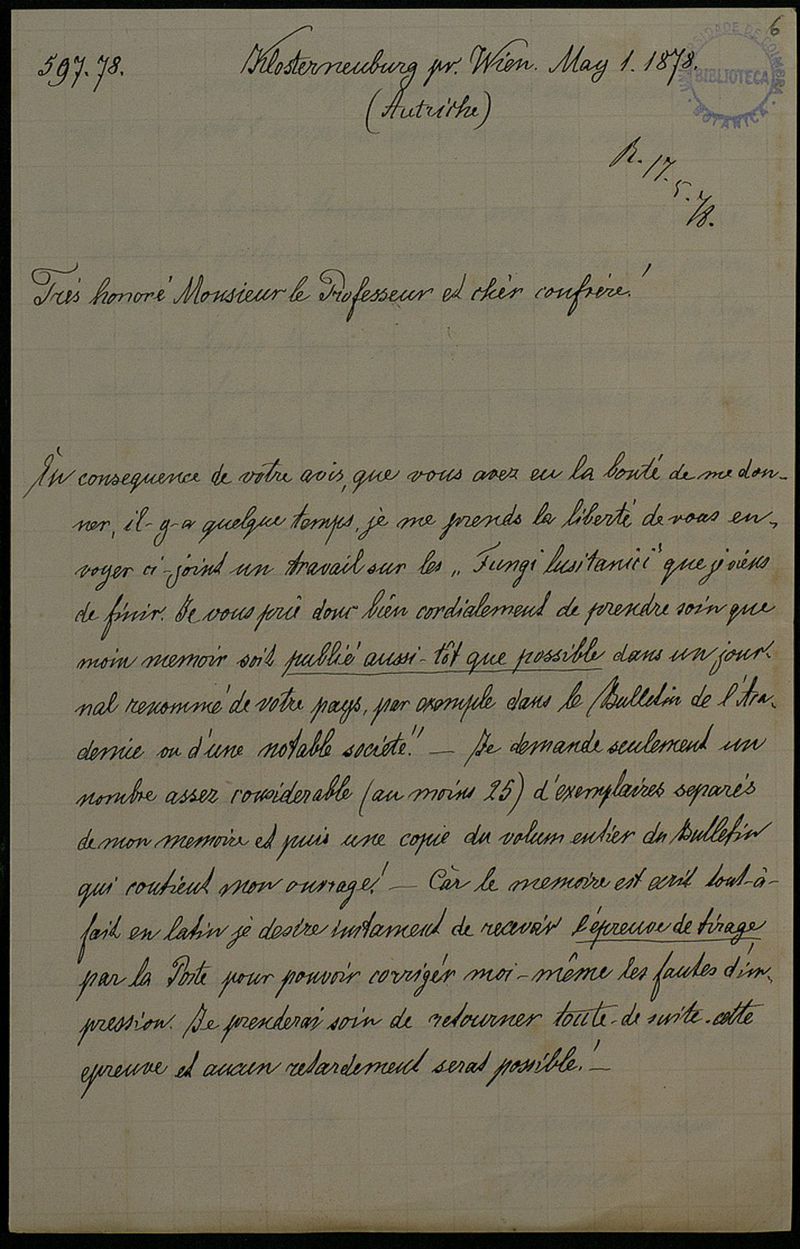 6
597.78. Klosterneuburg pr. Wien. May 1. 1878.
(Autriche)
UNIVERSIDADE DE COIMBRA
BIBLIOTECA
BOTANICA
R. 17. 5. 78.
Trés honoré Monsieur le Professeur et chèr confrére!
En consequence de votre avis, que vous avez eu la bonté de me don-
ner, il-y-a quelque temps, je me prends la liberté de vous en-
voyer ci-joint un travail sur les „Fungi lusitanici" que je viens
de finir. Je vous prie donc bien cordialement de prendre soin que
moin memoir soit publié aussi-tôt que possible dans un jour-
nal renommé de votre pays, par exemple dans le Bulletin de l'Aca-
demie ou d'une notable societé!! — Je demande seulement un
nombre assez considerable (au moins 25) d'exemplaires separés
de mon memoire et puis une copie du volum entier du Bulletin
qui contient mon ouvrage! — Càr le memoire est ecrit tout-à-
fait en latin je desire instament de recevoir l'épreuve de tirage
par la Poste pour pouvoir corrigér moi-même les fautes d'im-
pression. Je prenderai soin de retourner toute-de suite cette
epreuve et aucun retardement serat possible! —